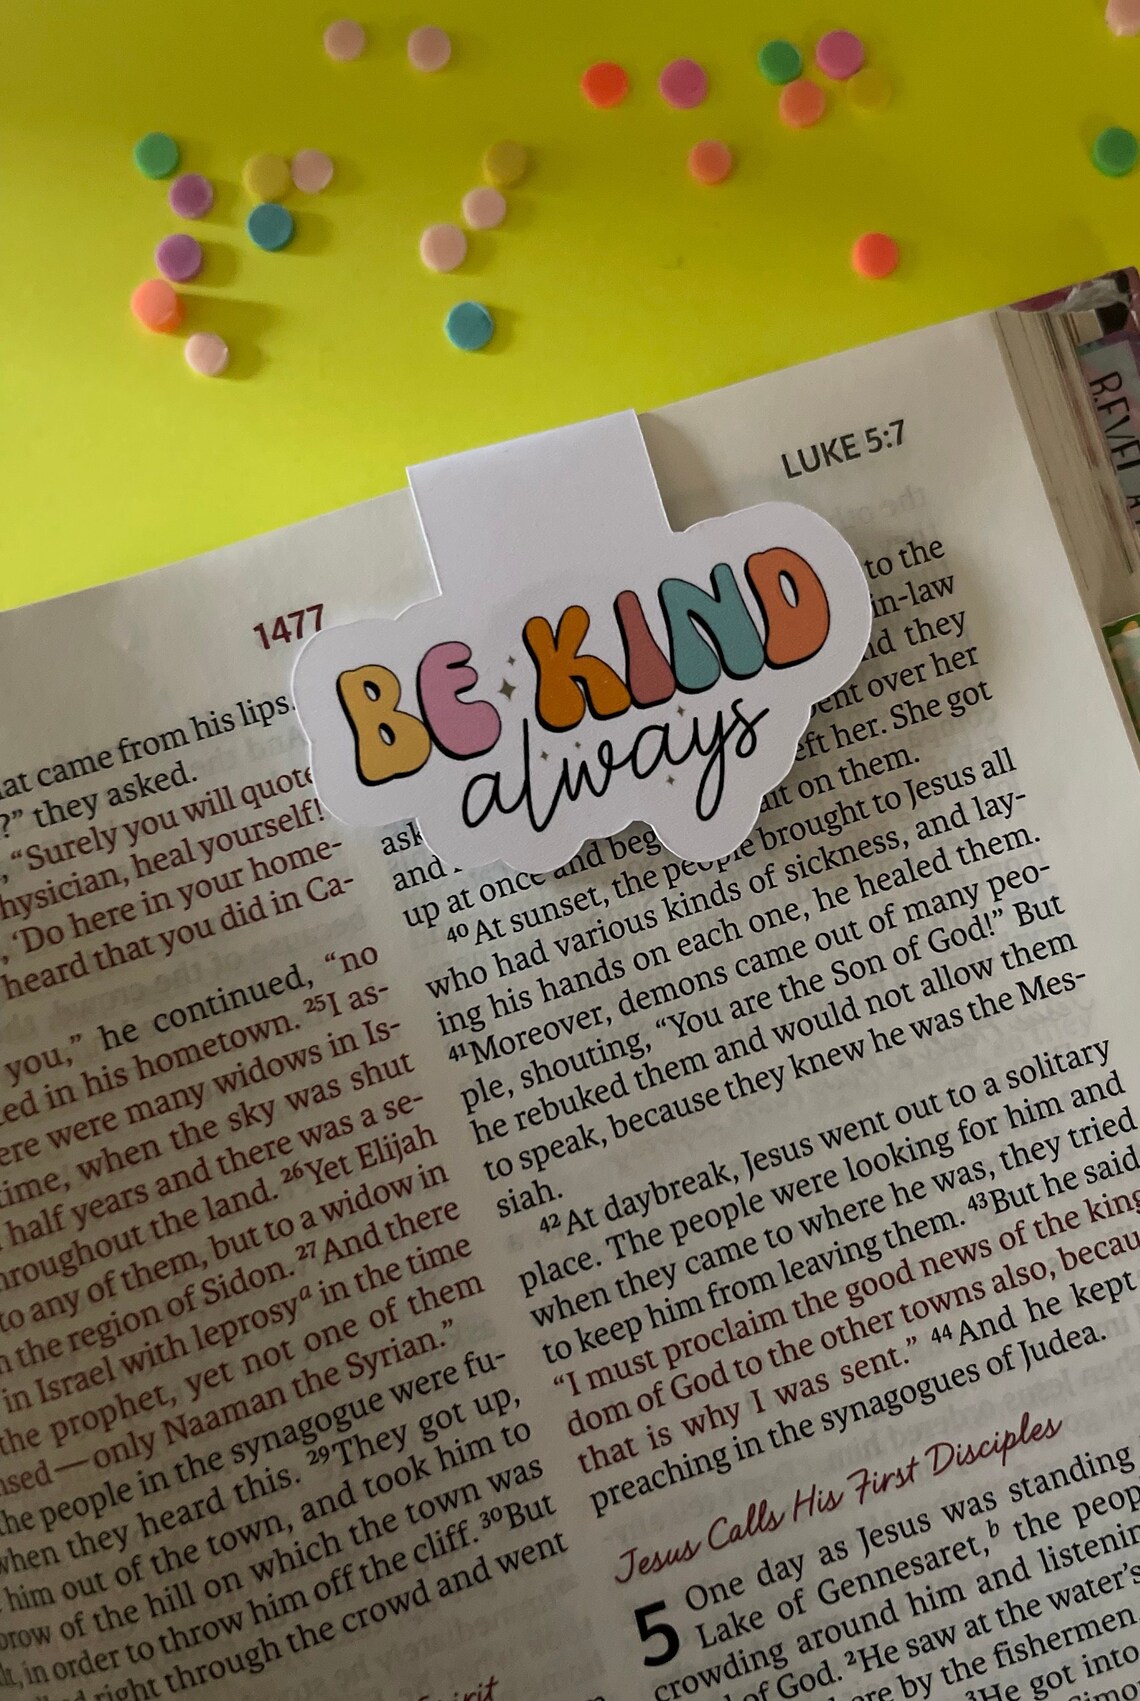 1477
LUKE 5:7
REVEL
BE KIND
always
at came from his lips.
?” they asked.
“Surely you will quote
hysician, heal yourself!
‘Do here in your home-
heard that you did in Ca-
you,” he continued, “no
ed in his hometown. ²⁵I as-
ere were many widows in Is-
time, when the sky was shut
half years and there was a se-
hroughout the land. ²⁶Yet Elijah
to any of them, but to a widow in
the region of Sidon. ²⁷And there
in Israel with leprosyᵃ in the time
the prophet, yet not one of them
nsed—only Naaman the Syrian.”
the people in the synagogue were fu-
when they heard this. ²⁹They got up,
him out of the town, and took him to
brow of the hill on which the town was
lt, in order to throw him off the cliff. ³⁰But
ed right through the crowd and went
Spirit
to the
in-law
nd they
ent over her
eft her. She got
ait on them.
ask
and
up at once and beg
⁴⁰At sunset, the people brought to Jesus all
who had various kinds of sickness, and lay-
ing his hands on each one, he healed them.
⁴¹Moreover, demons came out of many peo-
ple, shouting, “You are the Son of God!” But
he rebuked them and would not allow them
to speak, because they knew he was the Mes-
siah.
⁴²At daybreak, Jesus went out to a solitary
place. The people were looking for him and
when they came to where he was, they tried
to keep him from leaving them. ⁴³But he said
“I must proclaim the good news of the king
dom of God to the other towns also, becau
that is why I was sent.” ⁴⁴And he kept
preaching in the synagogues of Judea.
Jesus Calls His First Disciples
5 One day as Jesus was standing
Lake of Gennesaret,ᵇ the peop
crowding around him and listenin
of God. ²He saw at the water’s
ere by the fishermen,
³He got into
Simo